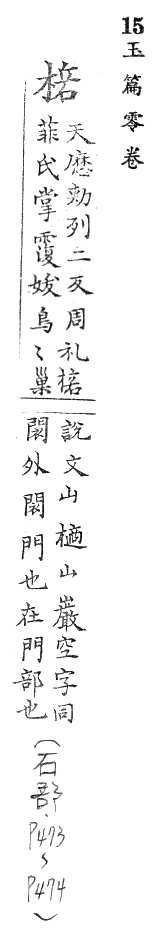 15玉篇零卷
棓
天歷勅列二反周礼棓
菲氏掌覆妭鳥〻巢
說文山樀山巖空字同
外門也在門部也
(石部·P473~P474)